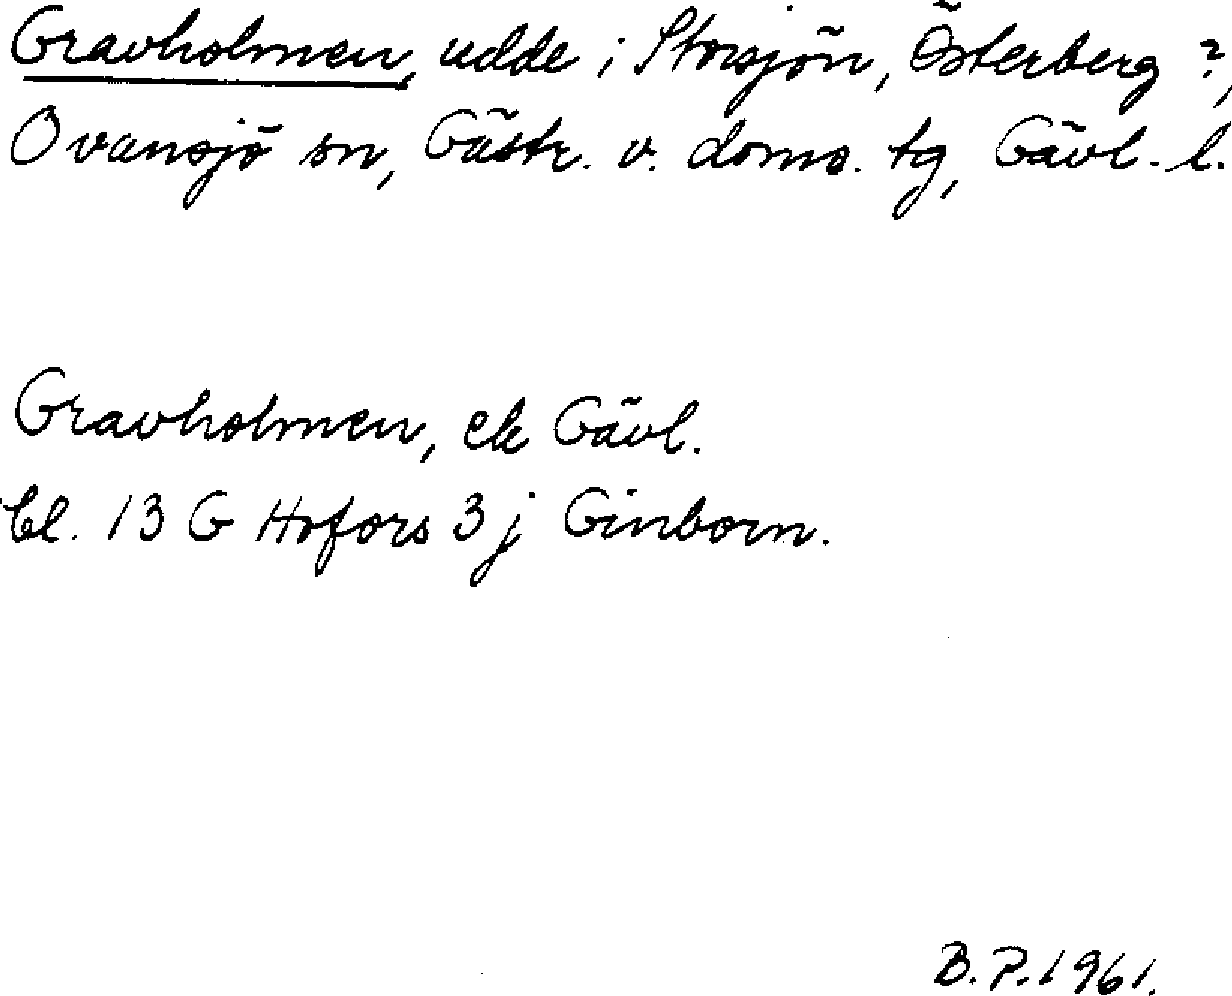 Gravholmen, udde i Storsjön, Österberg?,
Ovansjö sn, Gästr. v. doms. tg, Gävl. l.
Gravholmen, ek Gävl.
bl. 13 G Hofors 3 j Ginborn.
B.P. 1961.